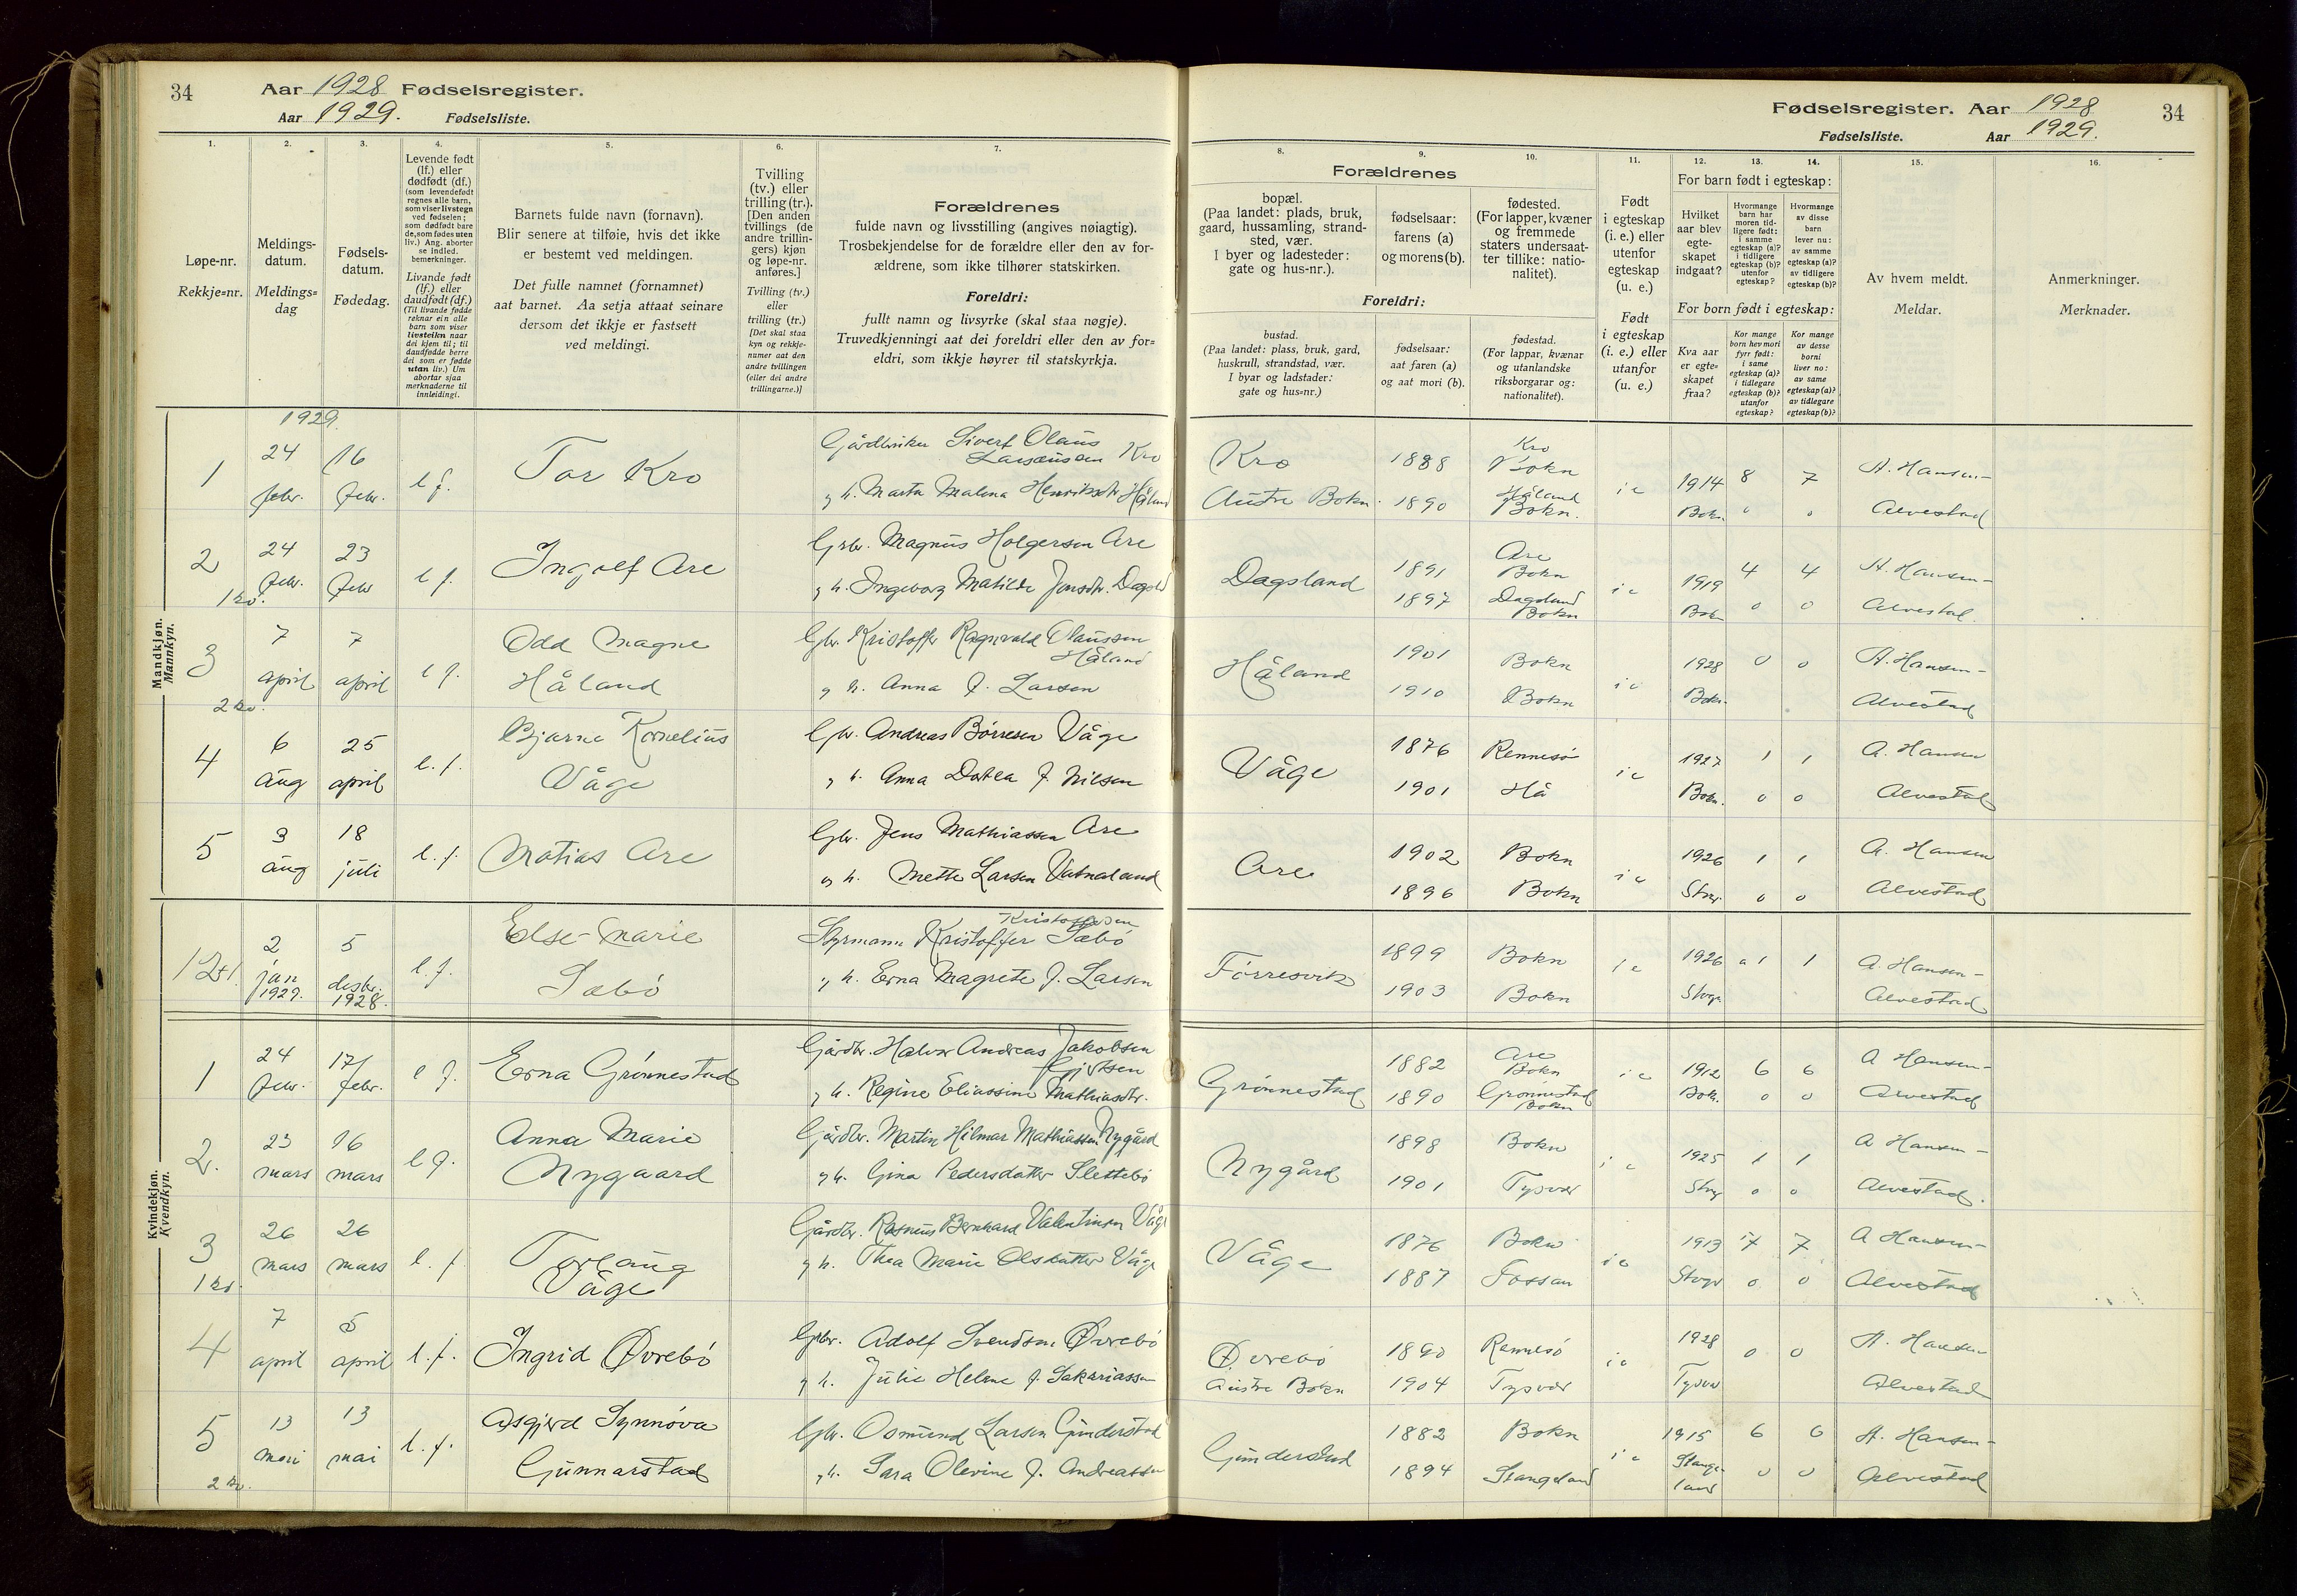 34 Aar 1928 Fødselsregister.
Aar 1929. Fødselsliste.
Fødselsregister. Aar 1928 34
Fødselsliste. Aar 1929.
1.
Løpe-nr.
Rekkje=nr.
2.
Meldings-
datum.
Meldings=
dag
3.
Fødsels-
datum.
Fødedag.
4.
Levende født
(lf.) eller
dødfødt (df.)
(som levendefødt
regnes alle barn,
som viser livstegn
ved fødselen;
som dødfødt bare
de, som fødes uten
liv.) Ang. aborter
se indled.
bemerkninger.
Livande født
(lf.) eller
daudfødt (df.)
(Til livande fødde
reknar ein alle
barn som viser
livsteikn naar
dei kjem til; til
daudfødde berre
dei som er fødde
utan liv.) Um
abortar sjaa
merknaderne til
innleidingi.
5.
Barnets fulde navn (fornavn).
Blir senere at tilføie, hvis det ikke
er bestemt ved meldingen.
Det fulle namnet (fornamnet)
aat barnet. Aa setja attaat seinare
dersom det ikkje er fastsett
ved meldingi.
6.
Tvilling
(tv.) eller
trilling (tr.).
[Den anden
tvillings (de
andre trillin-
gers) kjøn
og løpe-nr.
anføres.]
Tvilling (tv.)
eller
trilling (tr.)
[Det skal staa
kyn og rekkje-
numer aat den
andre tvillingen
(eller dei andre
trillingarne.)]
7.
Forældrenes
fulde navn og livsstilling (angives nøiagtig).
Trosbekjendelse for de forældre eller den av for-
ældrene, som ikke tilhører statskirken.
Foreldri:
fullt namn og livsyrke (skal staa nøgje).
Truvedkjenningi aat dei foreldri eller den av for=
eldri, som ikkje høyrer til statskyrkja.
8.
9.
10.
Forældrenes
bopæl.
(Paa landet: plads, bruk,
gaard, hussamling, strand-
sted, vær.
I byer og ladesteder:
gate og hus-nr.).
fødselsaar:
farens (a)
og morens (b).
fødested.
(For lapper, kvæner
og fremmede
staters undersaat-
ter tillike: natio-
nalitet).
Foreldri:
bustad.
(Paa landet: plass, bruk, gard,
huskrull, strandstad, vær.
I byar og ladstader:
gate og hus=nr.)
fødselsaar:
aat faren (a)
og aat mori (b).
fødestad.
(For lappar, kvænar
og utanlandske
riksborgarar og:
nationalitet).
11.
Født
i egteskap
(i. e.) eller
utenfor
egteskap
(u. e.)
Født
i egteskap
(i. e.) eller
utanfor
(u. e.)
12.
13.
14.
For barn født i egteskap:
Hvilket
aar blev
egte-
skapet
indgaat?
Hvormange
barn har
moren tid-
ligere født:
i samme
egteskap (a)?
i tidligere
egteskap (b)?
utenfor
egteskap?
Hvormange
av disse
barn
lever nu:
av samme
egteskap (a)?
av tidligere
egteskap (b)?
For born født i egteskap:
Kva aar
er egte=
skapet
fraa?
Kor mange
born hev mori
fyrr født:
i same
egteskap (a)?
i tidlegare
egteskap (b)?
utanfor
egteskap?
Kor mange
av desse
borni
liver no:
av same
egteskap (a)?
av tidlegare
egteskap (b)?
15.
Av hvem meldt.
Meldar.
16.
Anmerkninger.
Merknader.
Mandkjøn.
Mannkyn.
1929.
1 24 febr. 16 febr. l f. Tor Kro
Gårdbruker Sivert Olaus
Larsensen Kro
og h. Marta Malena Henriksdtr Håland
Kro
Austre Bokn. 1888 1890 Kro Bokn Håland Bokn. i e 1914 Bokn. 8 7 0 0 A. Hansen - Alvestad
2 24 febr. 23 febr l f. Ingolf Are
1 kv.
Gbr. Magnus Holgersen Are
og h. Ingeborg Matilde Jonsdtr. Dagsld
Dagsland 1891 1897 Are Bokn Dagsland Bokn i e 1919 Bokn 4 4 0 0 A. Hansen - Alvestad.
3 7 april 7 april l f. Odd Magne
Håland
2 kv.
Gbr. Kristoffer Ragnvald Olaussen
Håland
og h. Anna f. Larsen
Håland 1901 1910 Bokn Bokn i e 1928 Bokn. 0 0 A. Hansen - Alvestad
4 6 aug 25 april l. f. Bjarne Kornelius
Våge
Gbr. Andreas Børresen Våge
og h. Anna Dortea f. Nilsen
Våge 1876 1901 Rennesø Hå i e 1927 Bokn. 1 1 0 0 A. Hansen Alvestad
5 3 aug 18 juli l. f. Matias Are
Gbr. Jens Mathiassen Are
og h. Mette Larsen Vatnaland
Are 1902 1896 Bokn Bokn i e 1926 Stvgr 1 1 0 0 A. Hansen Alvestad
2 jan 1929. 5 desbr. 1928. l. f. Else-Marie
Sæbø
Kristoffersen
Styrmann Kristoffer Sæbø
og h. Erna Magrete f. Larsen
Førresvik 1899 1903 Bokn Bokn i e 1926 Stvgr a 1 1 A. Hansen - Alvestad
Kvindekjøn.
Kvendkyn.
1 24 febr. 17/ febr. l f. Erna Grønnestad
Gårdbr. Halvor Andreas Jakobsen
og h. Regine Eliassine Mathiasdtr.
Grønnestad 1882 1890 Are Bokn Grønnestad Bokn i e 1912 Bokn. 6 6 0 0 A Hansen - Alvestad
2. 23 mars 16 mars l f. Anna Marie
Nygaard
Gårdbr. Martin Hilmar Mathiassen Nygård
og h. Gina Pedersdatter Slettebø
Nygård 1898 1901 Bokn Tysvær i e 1925 Stvgr 1 1 0 0 A Hansen - Alvestad.
3 26 mars 26 mars l. f. Torlaug
Våge
1 kv.
Gårdbr. Rasmus Bernhard Valentinsen Våge
og h. Thea Marie Olsdatter Våge
Våge 1876 1887 Bokn Fossan i e 1913 Stvgr 7 7 0 0 A Hansen - Alvestad
4 7 april 5 april l. f. Ingrid Øvrebø
Gbr. Adolf Svendsen Øvrebø
og h. Julie Helene f. Sakariassen
Øvrebø
Austre Bokn 1890 1904 Rennesø Tysvær i e 1928 Tysvær 0 0 A. Hansen Alvestad
5 13 mai 13 mai l. f. Asgjerd Synnøva
Gunnarstad
2 kv.
Gbr. Osmund Larsen Gunderstad
og h. Sara Olevine f. Andreassen
Gunderstad 1882 1894 Bokn Stangeland i e 1915 Stange-
land 6 6 0 0 A. Hansen - Alvestad